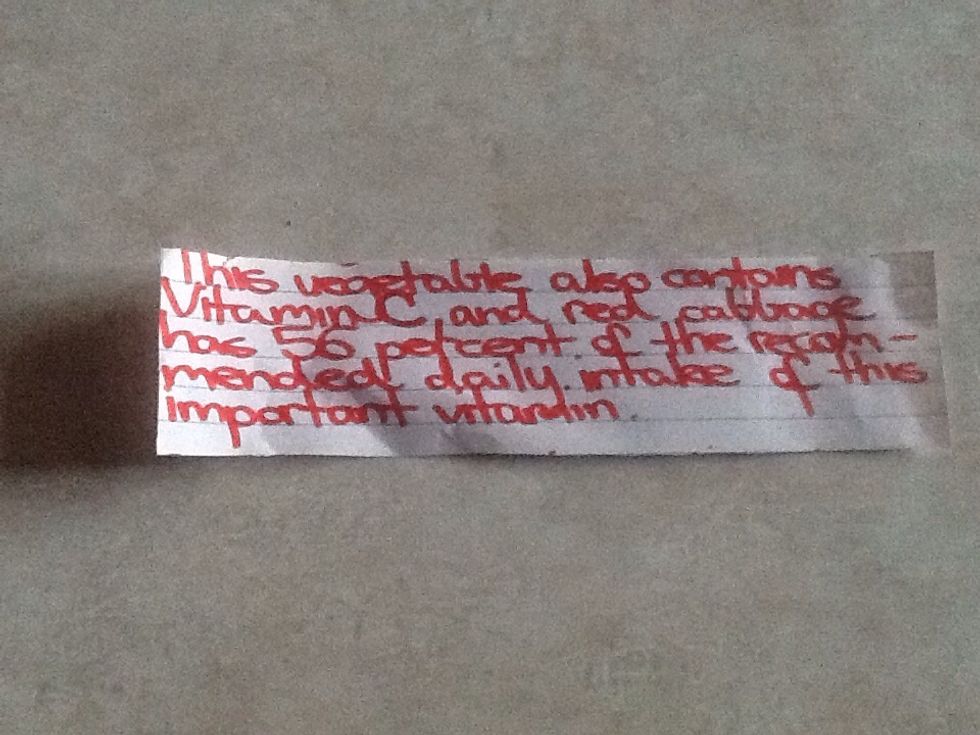 This vegetable also contains
Vitamin C and red cabbage
has 56 percent of the recom-
mended daily intake of this
important vitamin